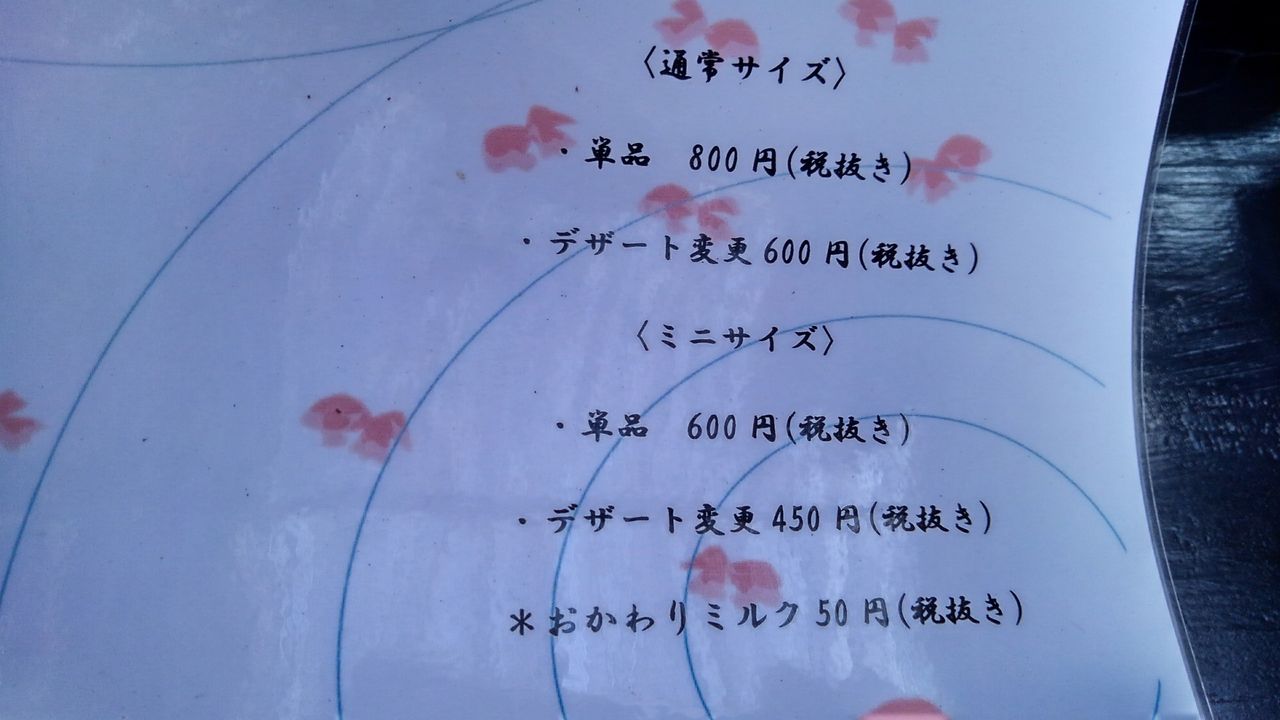 〈通常サイズ〉
・単品　800円(税抜き)
・デザート変更600円(税抜き)
〈ミニサイズ〉
・単品　600円(税抜き)
・デザート変更450円(税抜き)
＊おかわりミルク50円(税抜き)